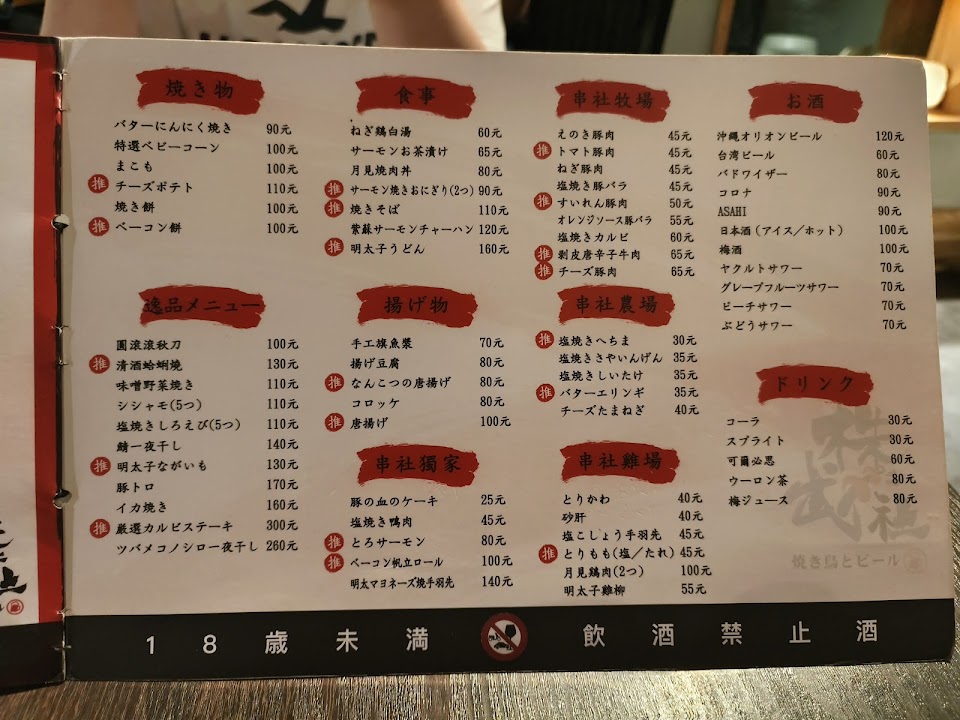 焼き物
バターにんにく焼き 90元
特選ベビーコーン 100元
まこも 100元
推 チーズポテト 110元
焼き餅 100元
推 ベーコン餅 100元
逸品メニュー
圓滾滾秋刀 100元
推 清酒蛤蜊燒 130元
味噌野菜焼き 110元
シシャモ(5つ) 110元
塩焼きしろえび(5つ) 110元
鯖一夜干し 140元
推 明太子ながいも 130元
豚トロ 170元
イカ焼き 160元
推 厳選カルビステーキ 300元
ツバメコノシロ一夜干し 260元
食事
ねぎ鶏白湯 60元
サーモンお茶漬け 65元
月見焼肉丼 80元
推 サーモン焼きおにぎり(2つ) 90元
推 焼きそば 110元
紫蘇サーモンチャーハン 120元
推 明太子うどん 160元
揚げ物
手工旗魚漿 70元
揚げ豆腐 80元
推 なんこつの唐揚げ 80元
コロッケ 80元
推 唐揚げ 100元
串社獨家
豚の血のケーキ 25元
塩焼き鴨肉 45元
推 とろサーモン 80元
推 ベーコン帆立ロール 100元
明太マヨネーズ焼手羽先 140元
串社牧場
えのき豚肉 45元
推 トマト豚肉 45元
ねぎ豚肉 45元
塩焼き豚バラ 45元
推 すいれん豚肉 50元
オレンジソース豚バラ 55元
塩焼きカルビ 60元
推 剥皮唐辛子牛肉 65元
推 チーズ豚肉 65元
串社農場
推 塩焼きへちま 30元
塩焼きさやいんげん 35元
塩焼きしいたけ 35元
推 バターエリンギ 35元
チーズたまねぎ 40元
串社雞場
とりかわ 40元
砂肝 40元
塩こしょう手羽先 45元
推 とりもも(塩/たれ) 45元
月見鶏肉(2つ) 100元
明太子雞柳 55元
お酒
沖縄オリオンビール 120元
台湾ビール 60元
バドワイザー 80元
コロナ 90元
ASAHI 90元
日本酒(アイス/ホット) 100元
梅酒 100元
ヤクルトサワー 70元
グレープフルーツサワー 70元
ピーチサワー 70元
ぶどうサワー 70元
ドリンク
コーラ 30元
スプライト 30元
可爾必思 60元
ウーロン茶 80元
梅ジュース 80元
焼き鳥とビール
18歳未満 飲酒禁止酒